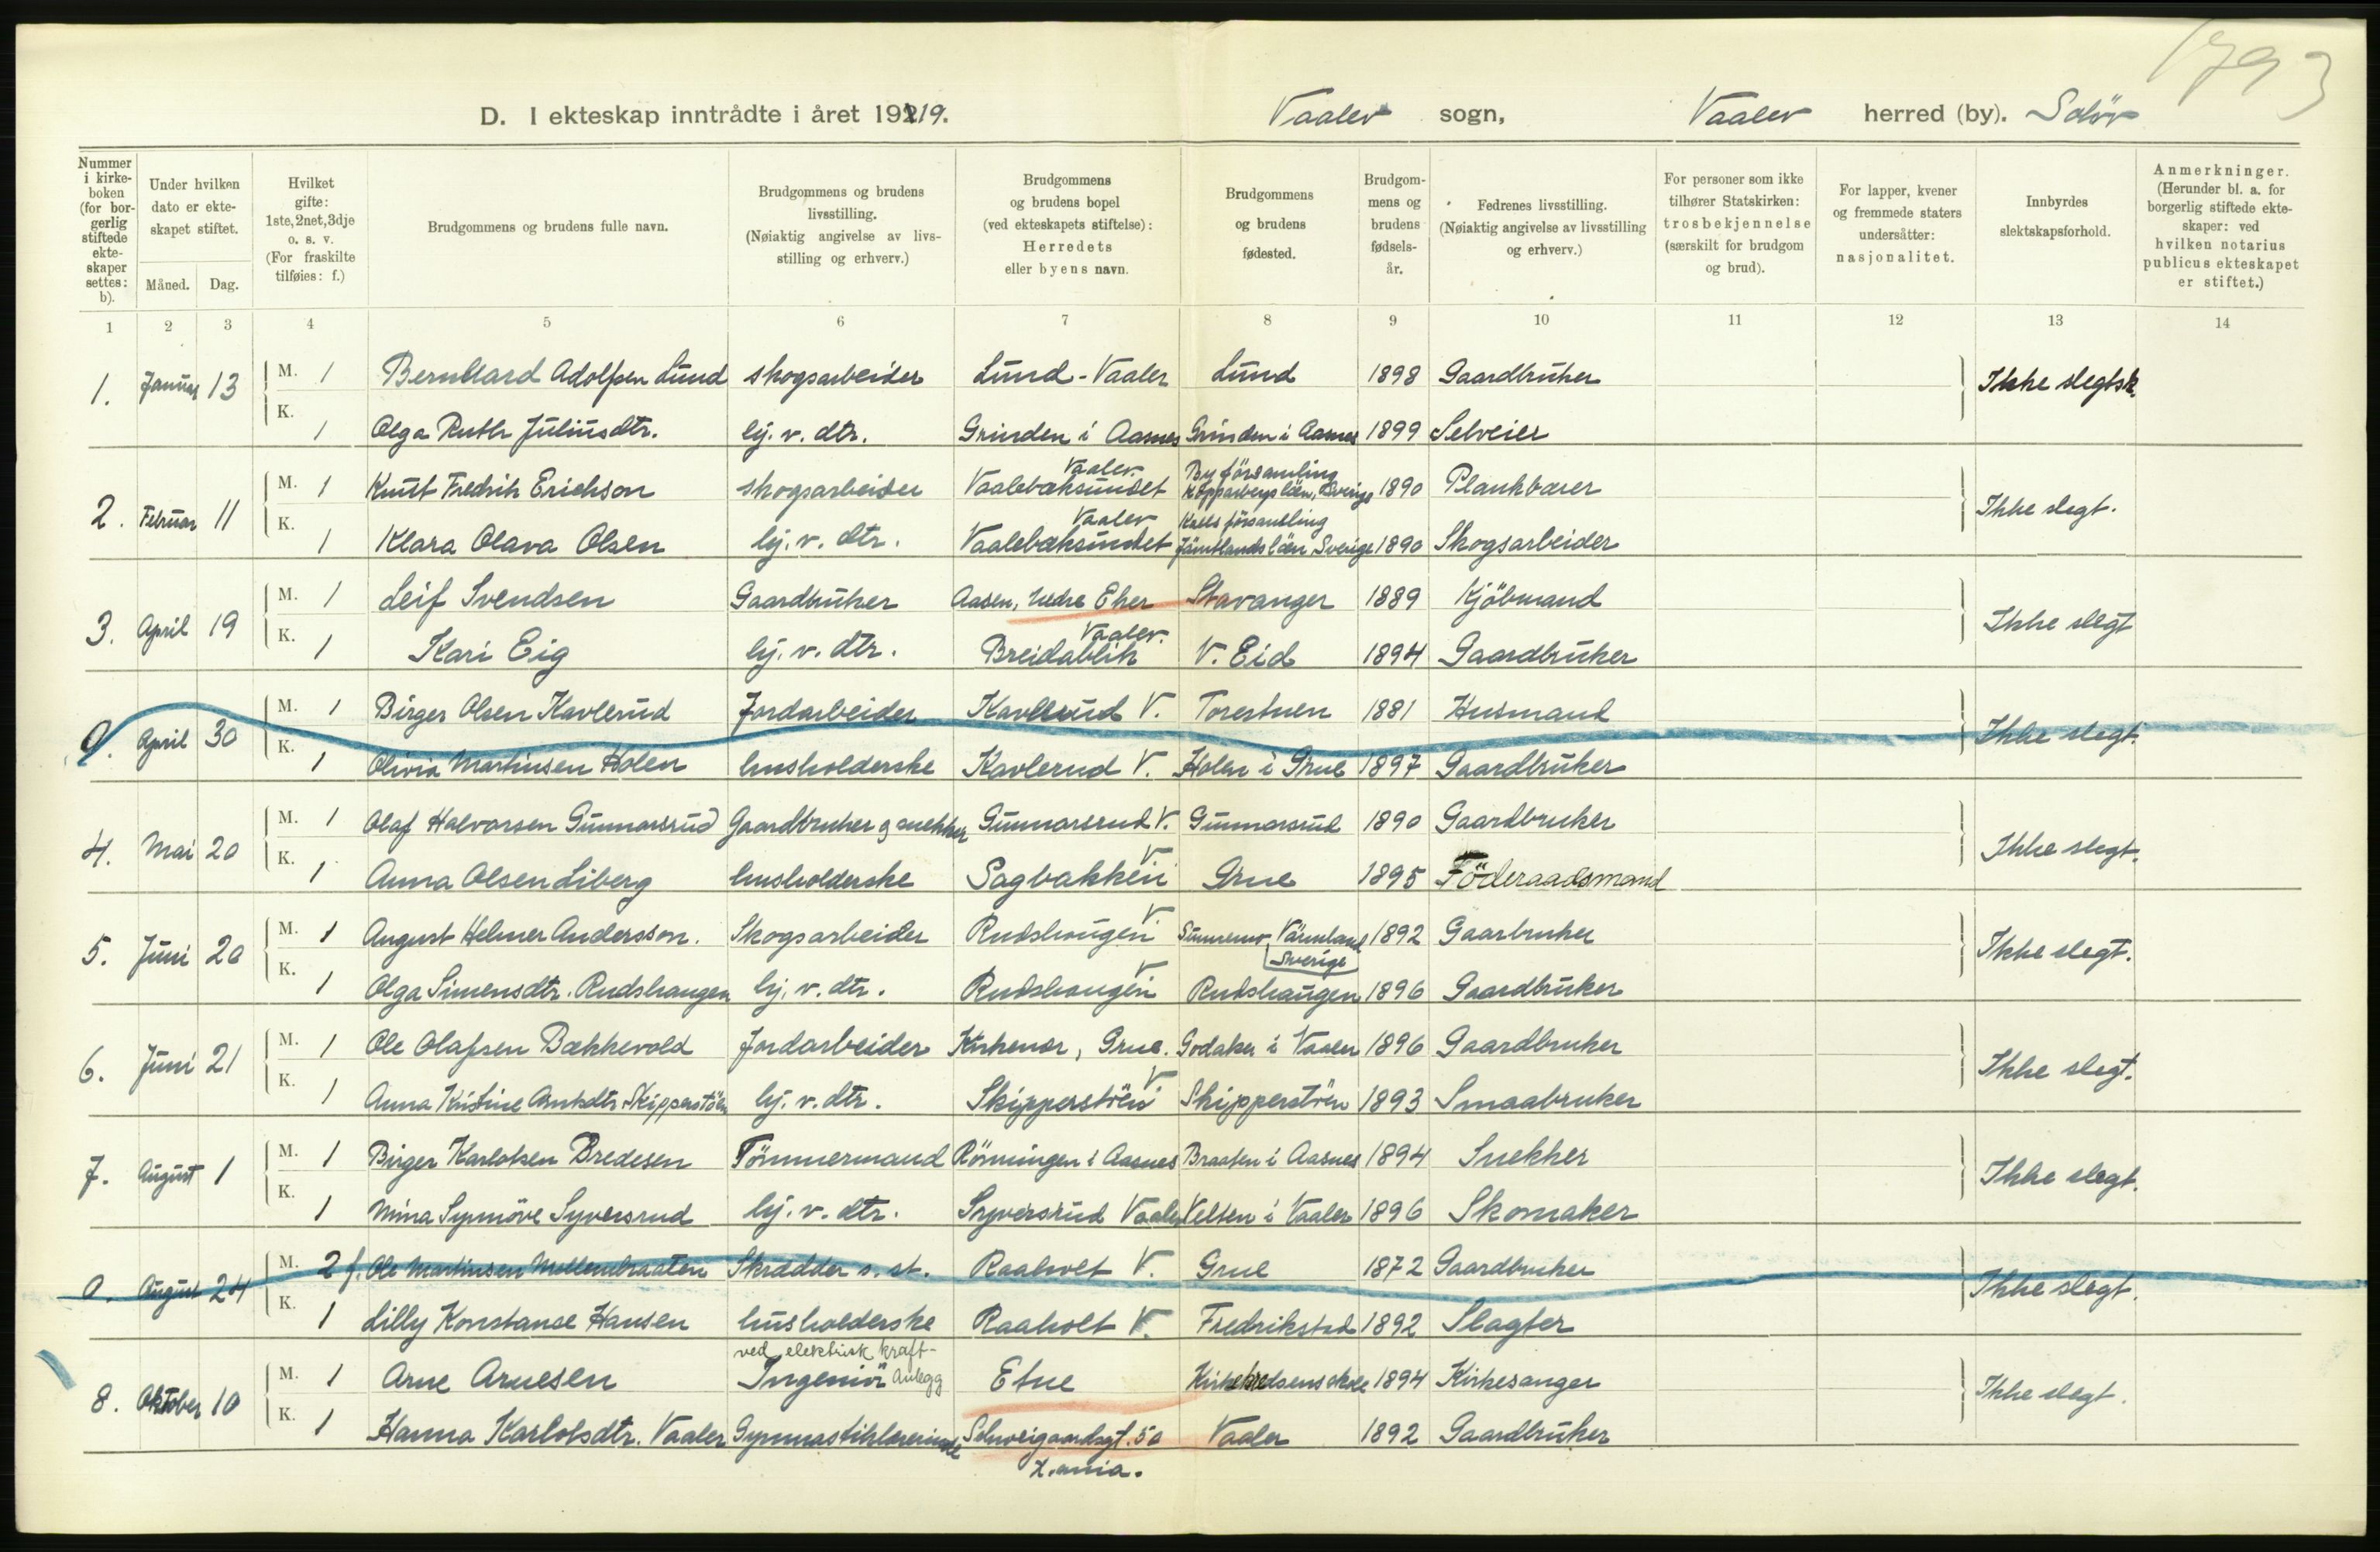 1793
D. I ekteskap inntrådte i året 1919. Vaaler sogn, Vaaler herred (by). Solör
Nummer i kirke-boken (for bor-gerlig stiftede ekte-skaper settes: b).
Under hvilken dato er ekte-skapet stiftet.
Måned. Dag.
Hvilket gifte: 1ste, 2net, 3dje o. s. v. (For fraskilte tilføies: f.)
Brudgommens og brudens fulle navn.
Brudgommens og brudens livsstilling. (Nøiaktig angivelse av livs-stilling og erhverv.)
Brudgommens og brudens bopel (ved ekteskapets stiftelse): Herredets eller byens navn.
Brudgommens og brudens fødested.
Brudgom-mens og brudens fødsels-år.
Fedrenes livsstilling. (Nøiaktig angivelse av livsstilling og erhverv.)
For personer som ikke tilhører Statskirken: trosbekjennelse (særskilt for brudgom og brud).
For lapper, kvener og fremmede staters undersåtter: nasjonalitet.
Innbyrdes slektskapsforhold.
Anmerkninger. (Herunder bl. a. for borgerlig stiftede ekte-skaper: ved hvilken notarius publicus ekteskapet er stiftet.)
1 2 3 4 5 6 7 8 9 10 11 12 13 14
1. Januar 13 M. 1 Bernhard Adolfsen Lund skogsarbeider Lund - Vaaler Lund 1898 Gaardbruker Ikke slegtsk.
K. 1 Olga Ruth Juliusdtr. hj. v. dtr. Grinden i Aasnes Grinden i Aasnes 1899 Selveier
2. Februar 11 M. 1 Knut Fredrik Erichson skogsarbeider Vaalebæksundet Vaaler By församling Kopparbergs läen, Sverige 1890 Plankbærer Ikke slegt.
K. 1 Klara Olava Olsen hj. v. dtr. Vaalebæksundet Vaaler Kalls församling Jämtlands läen Sverige 1890 Skogsarbeider
3. April 19 M. 1 Leif Svendsen Gaardbruker Aasen, Nedre Eker Stavanger 1889 Kjöbmand Ikke slegt
K. 1 Kari Eig hj. v. dtr. Breidablik Vaaler V. Eid 1894 Gaardbruker
0. April 30 M. 1 Birger Olsen Kavlerud Jordarbeider Kavlerud V. Torestuen 1881 Husmand Ikke slegt.
K. 1 Olivia Martinsen Holen husholderske Kavlerud V. Holen i Grue 1897 Gaardbruker
4. Mai 20 M. 1 Olaf Halvorsen Gunnarsrud Gaardbruker og snekker Gunnarsrud V. Gunnarsrud 1890 Gaardbruker Ikke slegt.
K. 1 Anna Olsen Liberg husholderske Sagbakken V. Grue 1895 Föderaadsmand
5. Juni 20 M. 1 August Helmer Andersson. Skogsarbeider Rudshaugen V. Sunnemo, Värmland Sverige 1892 Gaarbruker Ikke slegt.
K. 1 Olga Simensdtr. Rudshaugen hj. v. dtr. Rudshaugen V. Rudshaugen 1896 Gaardbruker
6. Juni 21 M. 1 Ole Olafsen Bækkevold Jordarbeider Kirkenær, Grue. Godaker i Vaaler 1896 Gaardbruker Ikke slegt.
K. 1 Anna Kristine Arntsdtr. Skipperstöen hj. v. dtr. Skipperstöen V. Skipperstöen 1893 Smaabruker
7. August 1 M. 1 Birger Karlotsen Bredesen Tömmermand Rönningen i Aasnes Braaten i Aasnes 1894 Snekker Ikke slegt.
K. 1 Mina Synnöve Syversrud hj. v. dtr. Syversrud Vaaler Velten i Vaaler 1896 Skomaker
0. August 24 M. 2 f. Ole Martinsen Mellembraaten Skrædder s. st. Raaholt V. Grue 1872 Gaardbruker Ikke slegt.
K. 1 Lilly Konstanse Hansen husholderske Raaholt V. Fredrikstad 1892 Slagter
8. Oktober 10 M. 1 Arne Arnesen Ingeniör ved elektrisk kraft-anlegg Etne Kirkekredsens skole 1894 Kirkesanger Ikke slegt.
K. 1 Hanna Karlotsdtr. Vaaler Gymnastiklærerinde Schweigaardsgt. 50 X.ania. Vaaler 1892 Gaardbruker